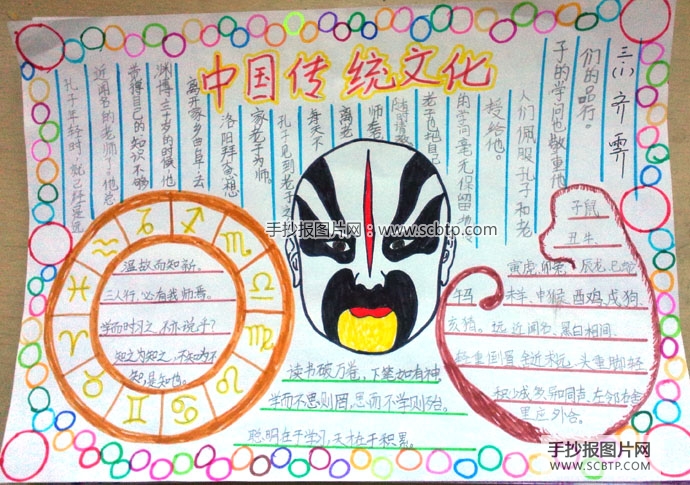 中国传统文化
三(1)齐霁
孔子年轻时,就已经是远
近闻名的老师了。他总
觉得自己的知识不够
渊博,三十岁的时候,他
离开家乡曲阜,去
洛阳拜大思想
家老子为师。
孔子见到老子
身
师
随
老子也把自己
的学问毫无保留
授给他。
人们佩服孔子和老
子的学问,也敬重他
们的品行。
手抄报图片网:www.scbtp.com
温故而知新。
三人行,必有我师焉。
学而时习之,不亦说乎?
知之为知之,不知为不
知,是知也。
读书破万卷,下笔如有神
学而不思则罔,思而不学则殆。
聪明在于学习,天才在于积累。
子鼠
丑牛、
寅虎、卯兔、辰龙、巳蛇
午马、未羊、申猴、酉鸡、戌狗、
亥猪。远近闻名、黑白相间、
轻重倒置、舍近求远、头重脚轻
积少成多、异口同声、左邻右舍
里应外合。
手抄报图片网
WWW.SCBTP.COM